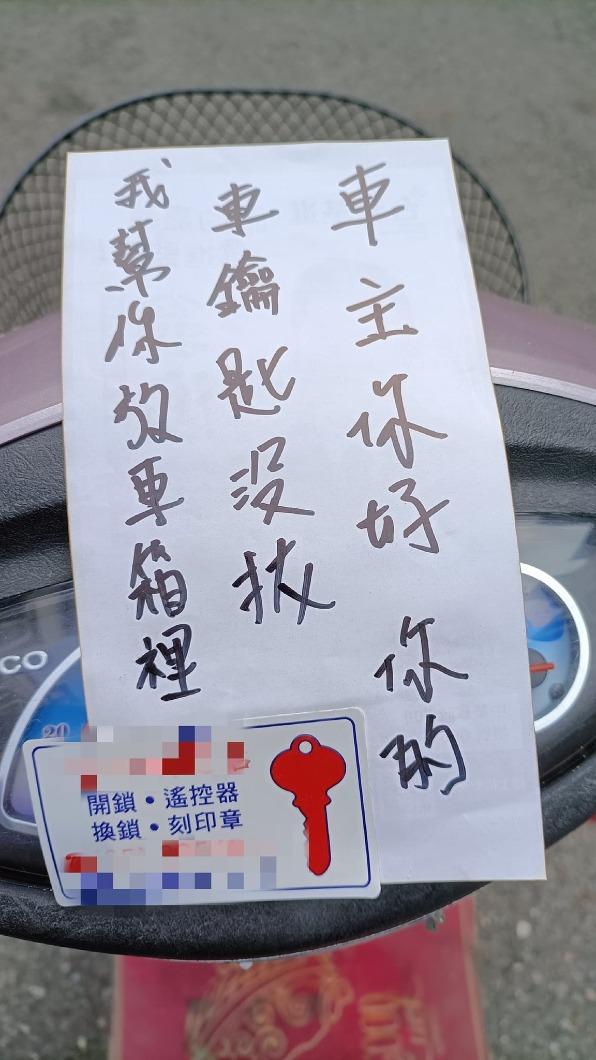 車主你好 你的
車鑰匙沒拔
我幫你放車箱裡
開鎖・遙控器
換鎖・刻印章
CO
20